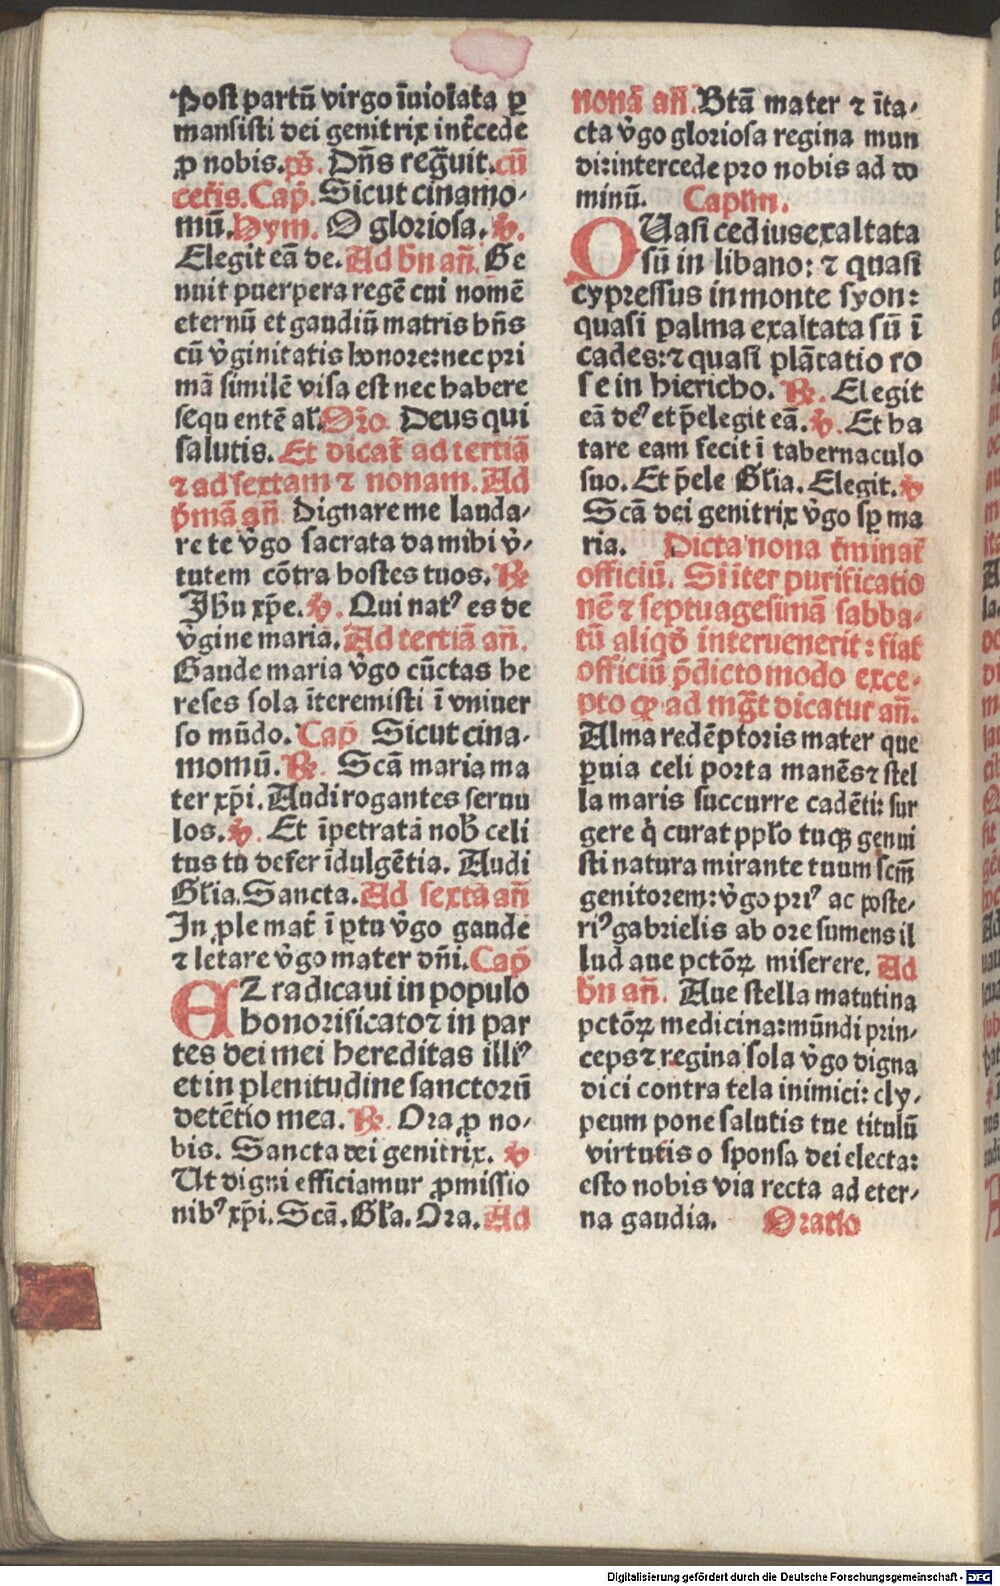 Post partū virgo īuiolata ꝑ
mansisti dei genitrix int̄cede
ꝓ nobis. ps̄. Dn̄s reḡuit. cū
cet̄is. Cap̄. Sicut cinamo-
mū. Hym. O gloriosa. ℣.
Elegit eā de. Ad bn̄ an̄. Ge
nuit puerpera regē cui nomē
eternū et gaudiū matris hn̄s
cū v̄ginitatis honore: nec pri
mā similē visa est nec habere
sequentē al̄. Or̄o. Deus qui
salutis. Et dicat̄ ad tertiā
⁊ ad sextam ⁊ nonam. Ad
p̄mā an̄ Dignare me lauda-
re te v̄go sacrata da mihi v̄-
tutem cōtra hostes tuos. ℟
Jhū xp̄e. ℣. Qui natꝰ es de
v̄gine maria. Ad tertiā an̄.
Gaude maria v̄go cūctas he
reses sola īteremisti ī vniuer
so mūdo. Cap̄ Sicut cina-
momū. ℟. Scā maria ma
ter xp̄i. Audi rogantes seruu
los. ℣. Et īpetratā nob̄ celi
tus tu defer īdulgētia. Audi
Gl̄ia. Sancta. Ad sextā an̄
In ꝓle mat̄ ī ꝑtu v̄go gaude
⁊ letare v̄go mater dn̄i. Cap̄
ET radicaui in populo
honorificato ⁊ in par
tes dei mei hereditas illiꝰ
et in plenitudine sanctorū
detētio mea. ℟. Ora ꝓ no-
bis. Sancta dei genitrix. ℣
Ut digni efficiamur ꝓmissio
nibꝰ xp̄i. Scā. Gl̄a. Ora. Ad
nonā an̄. Btā mater ⁊ īta-
cta v̄go gloriosa regina mun
di: intercede pro nobis ad do
minū. Caplm̄.
QUasi cedrus exaltata
sū in libano: ⁊ quasi
cypressus in monte syon:
quasi palma exaltata sū ī
cades: ⁊ quasi plātatio ro
se in hiericho. ℟. Elegit
eā deꝰ et p̄elegit eā. ℣. Et ha
tare eam fecit ī tabernaculo
suo. Et p̄ele Gl̄ia. Elegit. ℣
Scā dei genitrix v̄go sp̄ ma
ria. Dicta nona t̄minat̄
officiū. Si īter purificatio
nē ⁊ septuagesimā sabba-
tū aliqd̄ interuenerit: fiat
officiū p̄dicto modo exce-
pto ꝙ ad mḡt dicatur an̄.
Alma redēptoris mater que
ꝑuia celi porta manēs ⁊ stel
la maris succurre cadēti: sur
gere q̇ curat pplo tu q̄ genui
sti natura mirante tuum scm̄
genitorem: v̄go priꝰ ac poste-
riꝰ gabrielis ab ore sumens il
lud aue pctōꝝ miserere. Ad
bn̄ an̄. Aue stella matutina
pctōꝝ medicina: mūdi prin-
ceps ⁊ regina sola v̄go digna
dici contra tela inimici: cly-
peum pone salutis tue titulū
virtutis o sponsa dei electa:
esto nobis via recta ad eter-
na gaudia. Oratio
Digitalisierung gefördert durch die Deutsche Forschungsgemeinschaft - DFG